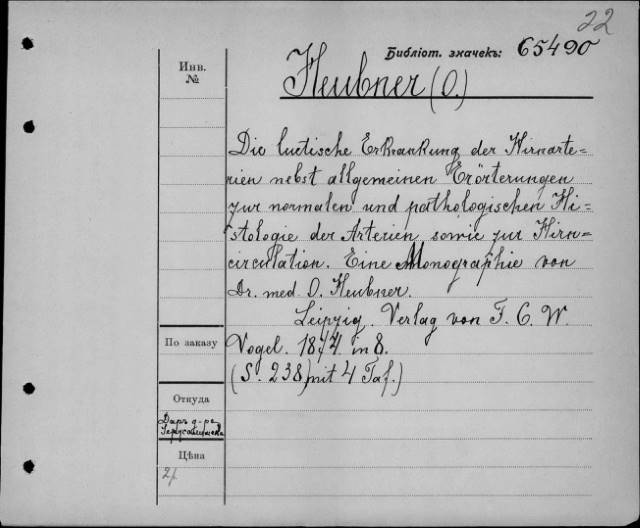 22
Библіот. значекъ: 65490
Инв.
№
Heubner (O.)
Die luetische Erkrankung der Hirnarte=
rien nebst allgemeinen Erörterungen
zur normalen und pathologischen Hi=
stologie der Arterien sowie zur Hirn=
circulation. Eine Monographie von
Dr. med. O. Heubner.
Leipzig. Verlag von F. C. W.
По заказу
Vogel. 1874. in 8.
(S. 238) mit 4 Taf.)
Откуда
Даръ д-ра
Цѣна